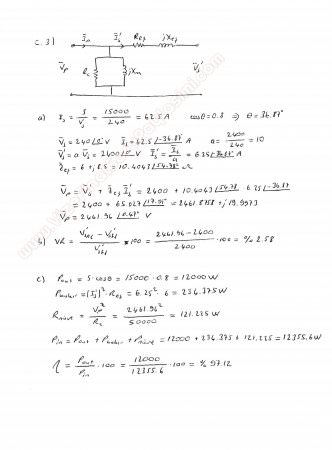 C.3)
Ī_p Ī_s' R_eş jX_eş
V̄_p R_c jX_m V̄_s'
a) I_s = S/V_s = 15000/240 = 62.5 A cosθ = 0.8 ⇒ θ = 36.87°
V̄_s = 240∠0° V Ī_s = 62.5∠-36.87° A a = 2400/240 = 10
V̄_s' = a V̄_s = 2400∠0° V Ī_s' = Ī_s/a = 6.25∠-36.87° A
Z̄_eş = 6 + j8.5 = 10.4043∠54.78° Ω
V̄_p = V̄_s' + Z̄_eş Ī_s' = 2400 + 10.4043∠54.78 · 6.25∠-36.87
= 2400 + 65.027∠17.91° = 2461.8758 + j19.9973
V̄_p = 2461.96∠0.47° V
b) VR = · 100 = 2461.96 - 2400/2400 · 100 = % 2.58
c) P_out = S·cosθ = 15000 · 0.8 = 12000 W
= |I_s'|² · R_eş = 6.25² · 6 = 234.375 W
= V_p²/R_c = 2461.96²/50000 = 121.225 W
P_in = P_out + + = 12000 + 234.375 + 121.225 = 12355.6 W
η = P_out/P_in · 100 = 12000/12355.6 · 100 = % 97.12